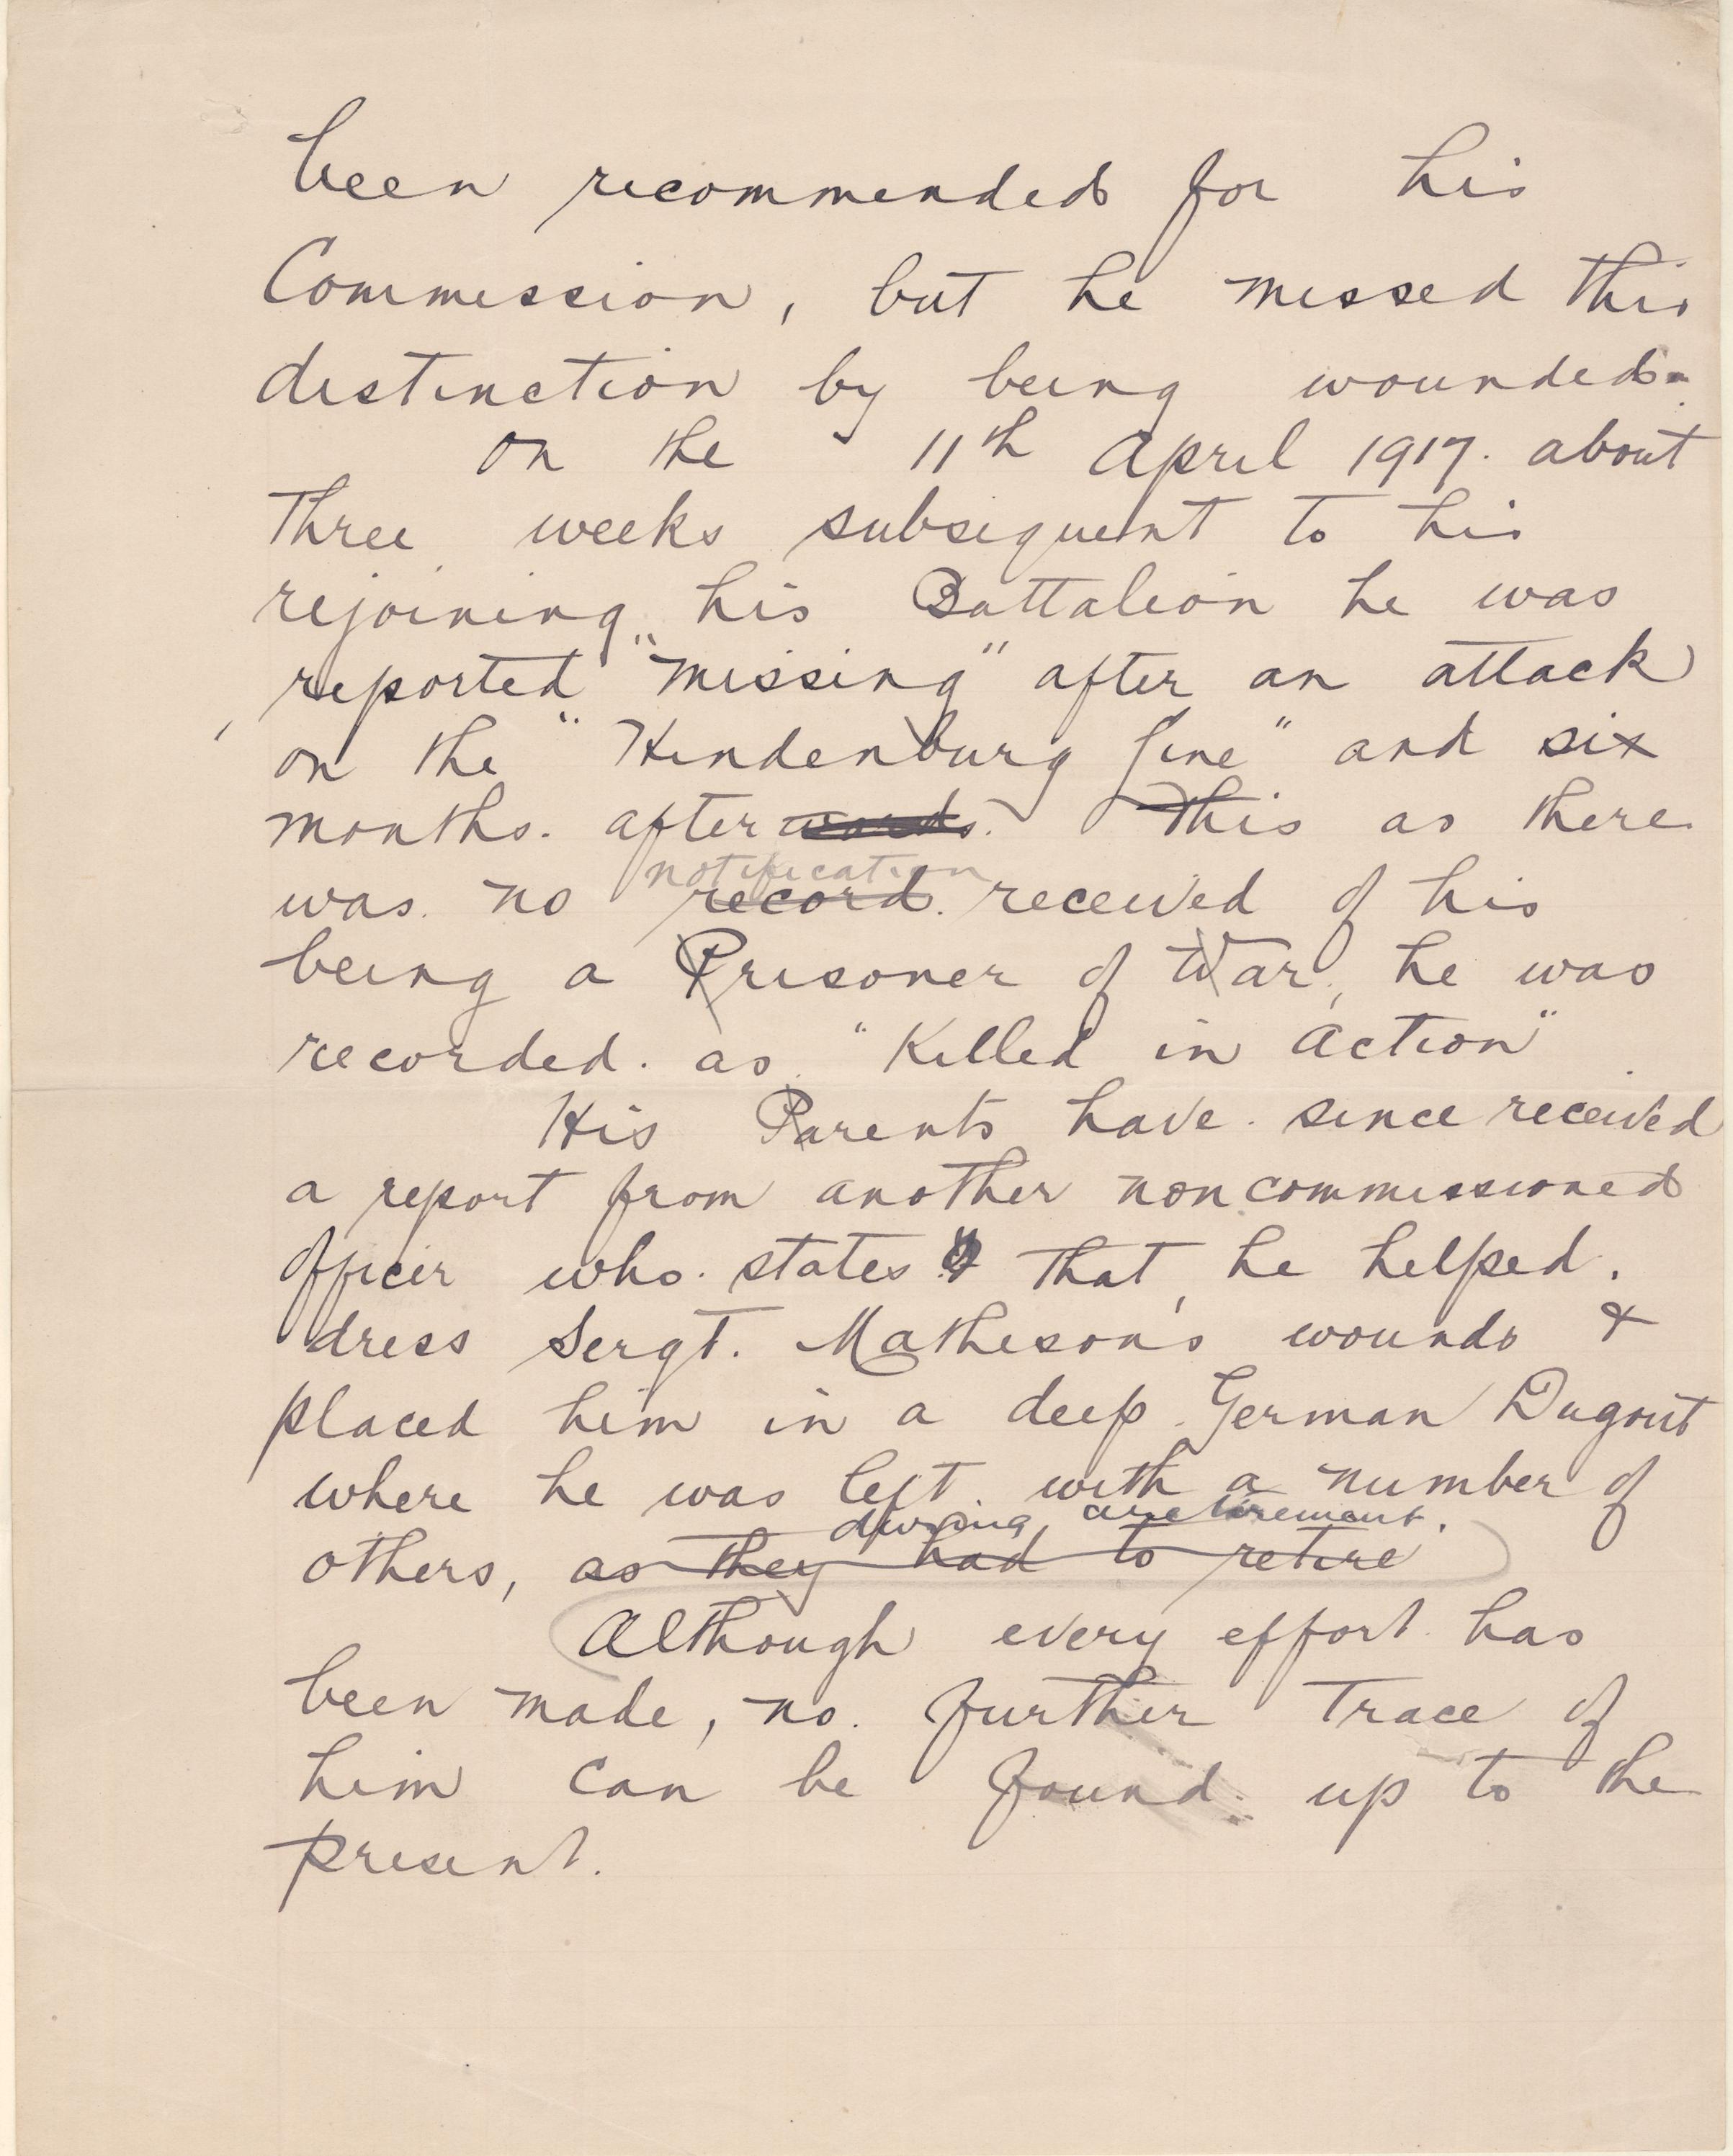 been recommended for his
Commission, but he missed this
distinction by being wounded.
On the 11th April 1917. about
three weeks subsequent to his
rejoining his Battalion he was
reported "missing" after an attack
on the "Hindenburg Line" and six
months. afterwards. This as there
notification
was. no record. received of his
being a Prisoner of War, he was
recorded. as "Killed in Action"
His Parents have. since received
a report from another noncommissioned
Officer who. states that he helped.
dress Sergt. Matheson's wounds &
placed him in a deep German Dugout
where he was left. with a number of
during a retirement.
others, as they had to retire
Although every effort has
been made, no. further trace of
him can be found. up to the
present.